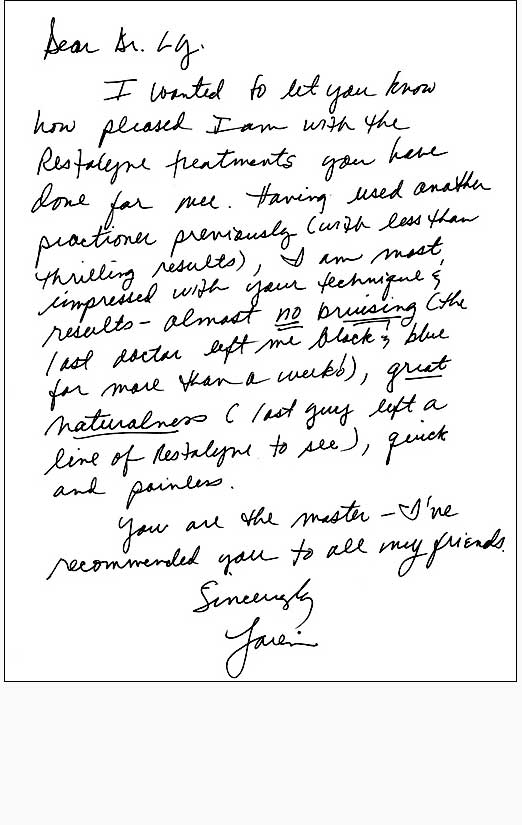 Dear Dr. Ly.
I wanted to let you know
how pleased I am with the
Restalyne treatments you have
done for me. Having used another
practioner previously (with less than
thrilling results), I am most
impressed with your technique &
results - almost no bruising (the
last doctor left me black & blue
for more than a week!), great
naturalness (last guy left a
line of Restalyne to see), quick
and painless.
You are the master - I've
recommended you to all my friends.
Sincerely